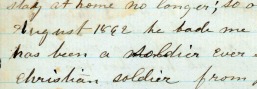 stay at home no longer; so o
August 1862 he bade me
has been a soldier ever
christian soldier from